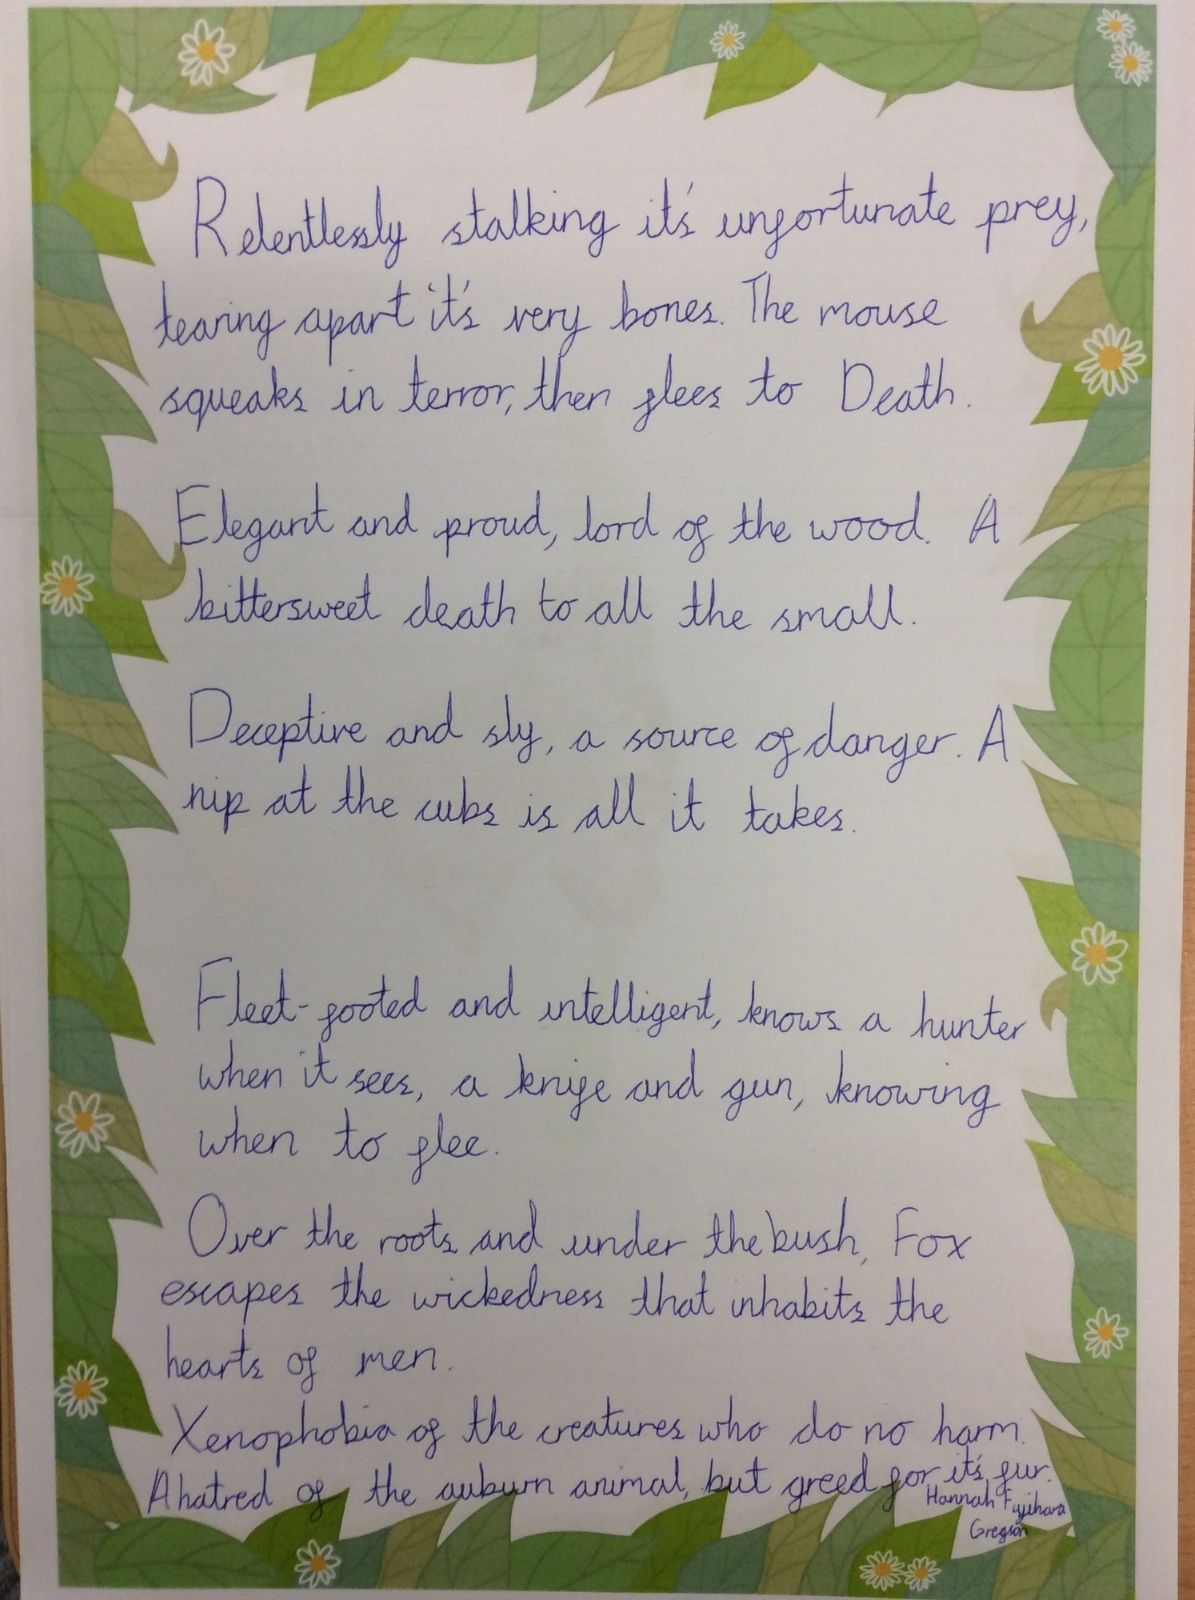 Relentlessly stalking it's unfortunate prey,
tearing apart it's very bones. The mouse
squeaks in terror, then flees to Death.
Elegant and proud, lord of the wood. A
bittersweet death to all the small.
Deceptive and sly, a source of danger. A
nip at the cubs is all it takes.
Fleet-footed and intelligent, knows a hunter
when it sees, a knife and gun, knowing
when to flee.
Over the roots and under the bush, Fox
escapes the wickedness that inhabits the
hearts of men.
Xenophobia of the creatures who do no harm.
A hatred of the auburn animal, but greed for it's fur.
Hannah Fujihara
Gregson